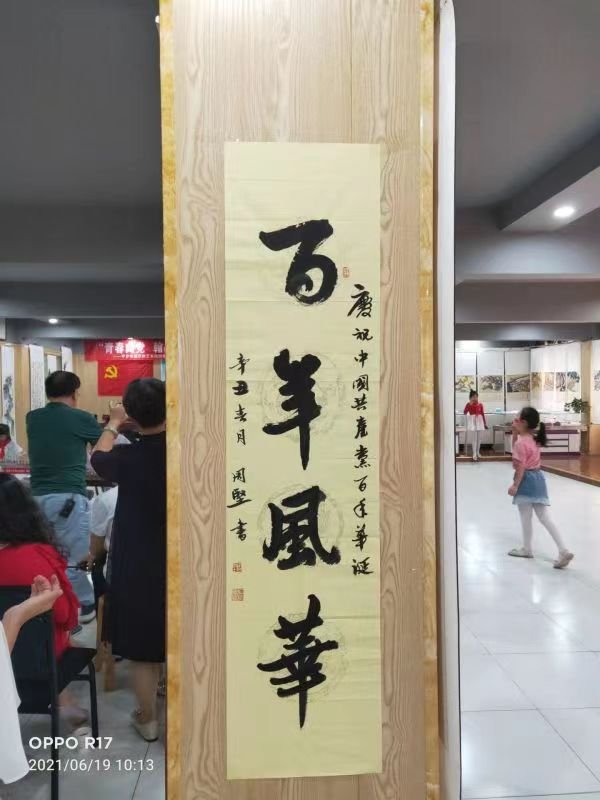 慶祝中國共產黨百年華誕
百年風華
辛丑春月 周堅書
"青春
OPPO R17
2021/06/19 10:13